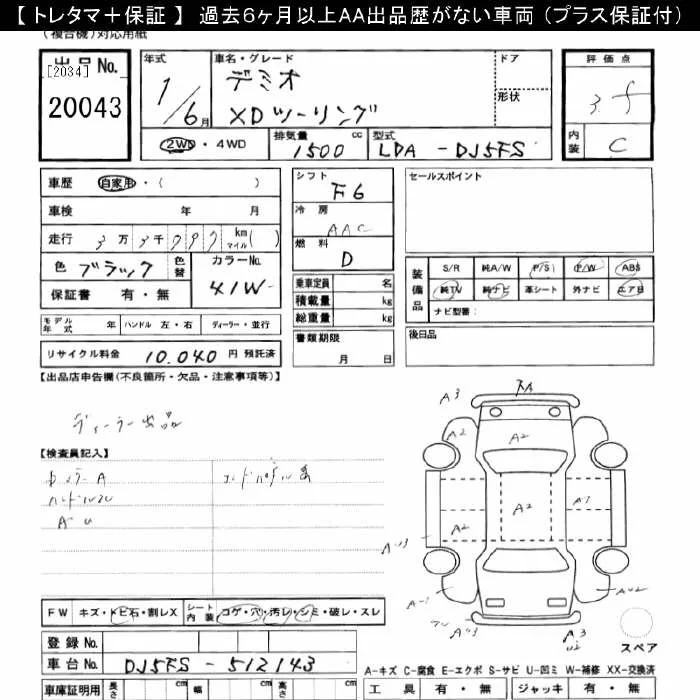 【 トレタマ＋保証 】 過去６ヶ月以上ＡＡ出品歴がない車両（プラス保証付）
(複合機)対応用紙
出品No.
[2034]
20043
年式
1/6月
車名・グレード
デミオ
XDツーリング
ドア
形状
評価点
3.5
内装
C
2WD・4WD
排気量
1500 cc
型式
LDA - DJ5FS
車歴 自家用・( )
車検 年 月
走行 3万3千797 km マイル( )
色 ブラック 色替
カラーNo.
41W
保証書 有・無
シフト
F6
冷房
AAC
燃料
D
乗車定員 名
積載量 kg
総重量 kg
書類期限
月 日
セールスポイント
装備品
S/R 純A/W P/S P/W ABS
純TV 純ナビ 革シート 外ナビ エア目
ナビ型番:
後日品
モデル年式 年 ハンドル 左・右 ディーラー・並行
リサイクル料金 10,040 円 預託済
【出品店申告欄(不良箇所・欠品・注意事項等)】
ディーラー出品
【検査員記入】
ハンドルスレ
FW キズ・トビ石・割レX シート内装 コゲ・穴・汚レ・シミ・破レ・スレ
登録No.
車台No. DJ5FS - 512143
車庫証明用 長さ cm 幅 cm 高さ cm
A3
A2
A2
A2
A2
A1
A-1
スペア
A-キズ C-腐食 E-エクボ S-サビ U-凹ミ W-補修 XX-交換済
工具 有・無 ジャッキ 有・無